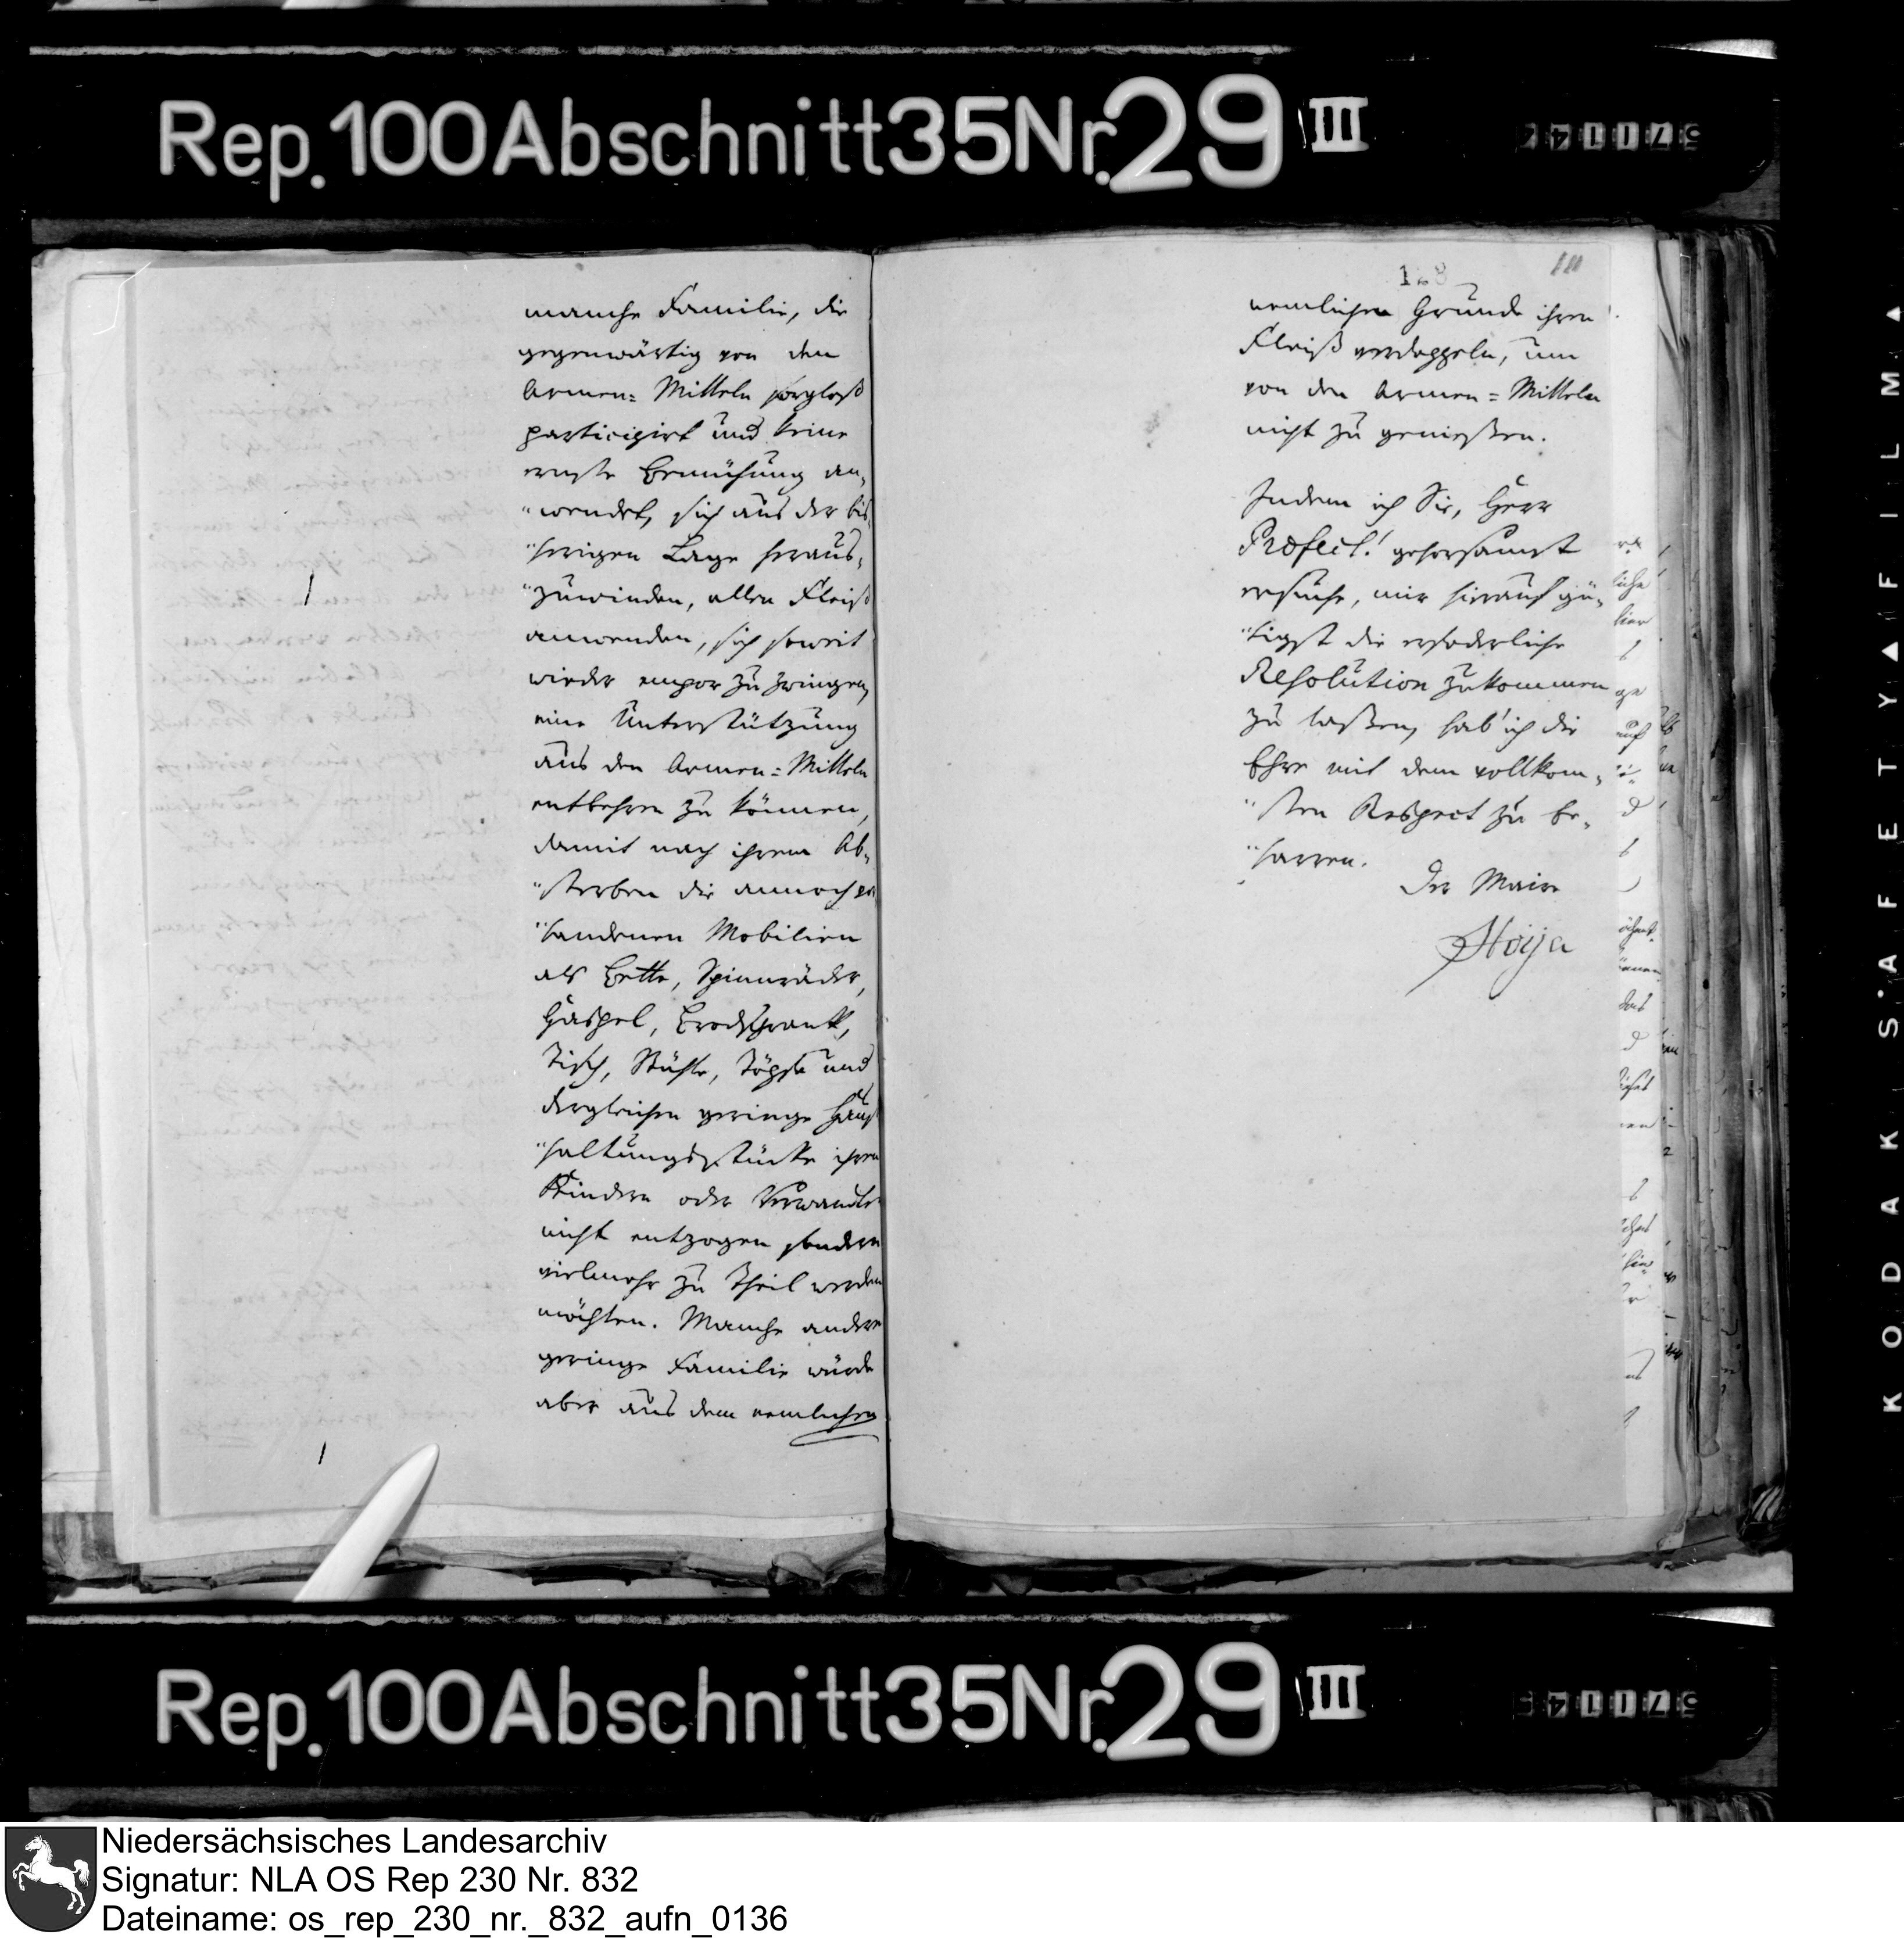 Rep. 100 Abschnitt 35 Nr. 29 III
manche Familie, die
gegenwärtig von den
Armen= Mitteln sorgloß
participirt und keine
ernste Bemühung an„
"wendet, sich aus der bis„
"herigen Lage heraus„
"zuwinden, allen Fleiß
anwenden, sich soweit
wieder empor zu zwingen,
eine Unterstützung
aus den Armen= Mitteln
entbehren zu können,
damit nach ihrem Ab„
"sterben die annoch vor
"handenen Mobilien
als Bette, Spinnräder,
Haspel, Brodschrank,
Tisch, Stühle, Töpfe und
dergleichen geringe Haus
"haltungsstücke ihren
Kindern oder Verwandten
nicht entzogen sondern
vielmehr zu Theil werden
möchten. Manche andere
geringe Familie würde
aber aus dem nemlichen
128
nemlichen Grunde ihren
Fleiß verdoppeln, um
von den Armen= Mitteln
nicht zu genießen.
Indem ich Sie, Herr
Præfect! gehorsamst
ersuche, mir hierauf gü„
"tigst die erfoderliche
Resolution zukommen
zu laßen, hab' ich die
Ehre mit dem vollkom„
"sten Respect zu be„
"harren.
Der Maire
Stöija
Rep. 100 Abschnitt 35 Nr. 29 III
KODAK SAFETY FILM
Niedersächsisches Landesarchiv
Signatur: NLA OS Rep 230 Nr. 832
Dateiname: os_rep_230_nr._832_aufn_0136